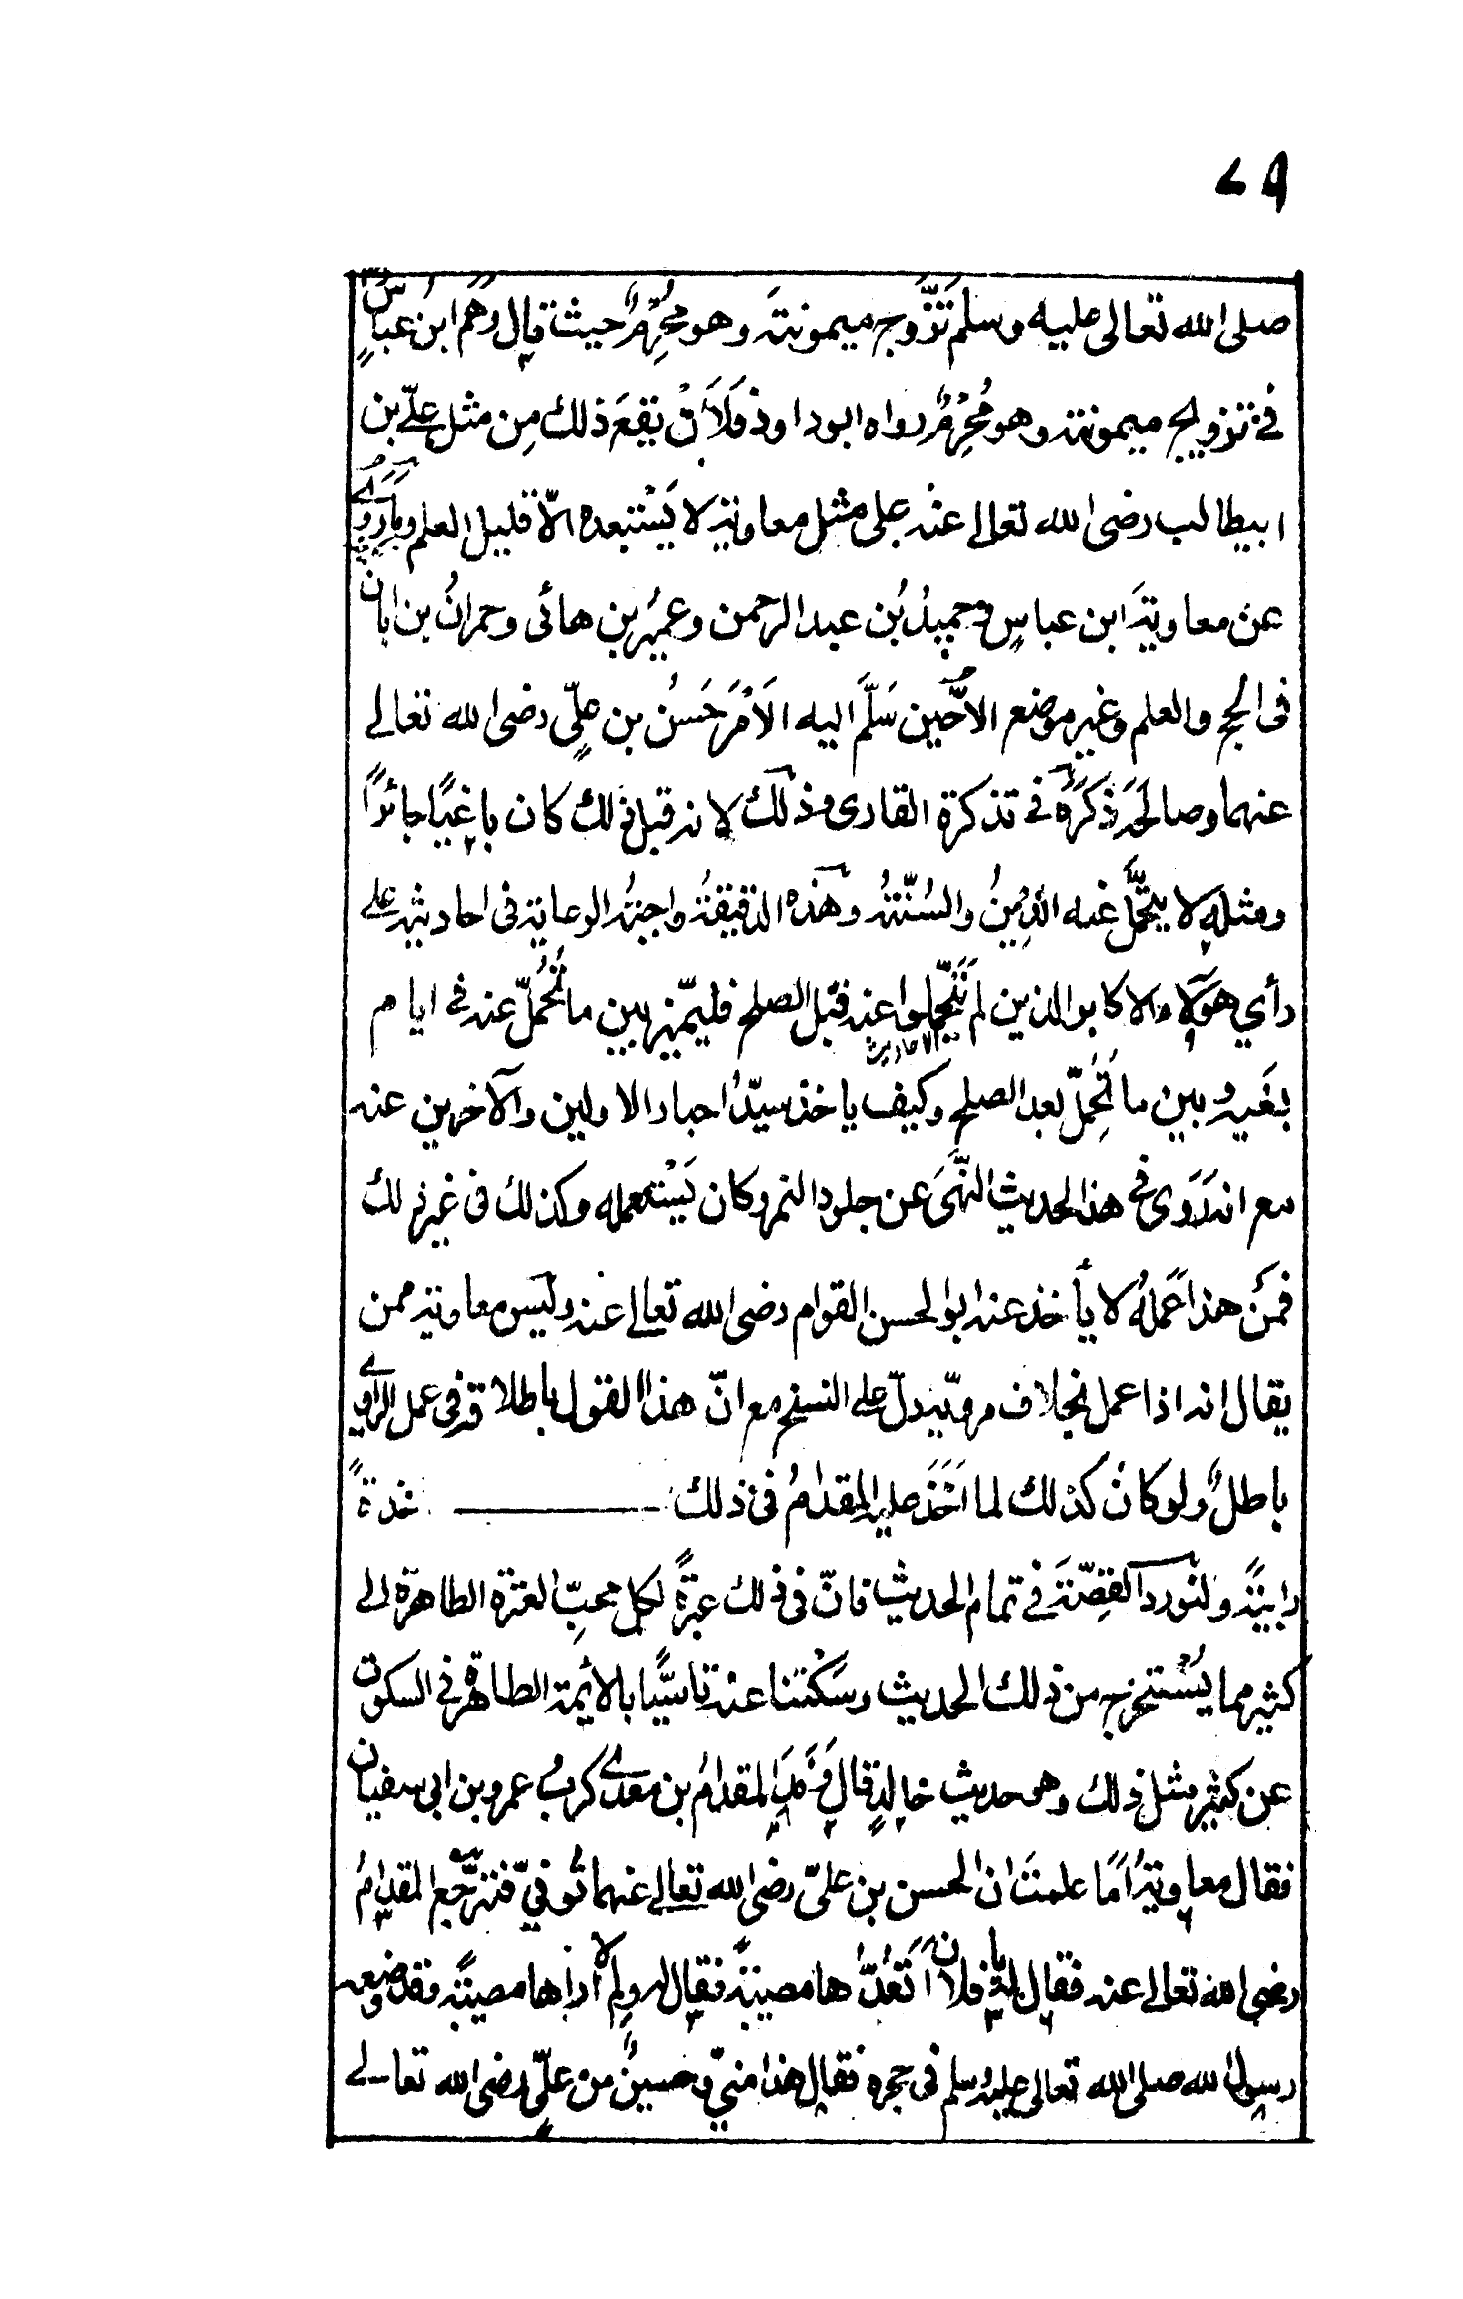 ٧٩
صلى الله تعالى عليه وسلم تَزَّوج ميمونة وهو مُحْرِمٌ حيث قال وَهَمَ ابنُ عباسٍ
في تزويج ميمونة وهو مُحْرِمٌ رواه ابوداوذ فَلَأَنْ يقعَ ذلك مِن مثل عليّ بن
ابيطالب رضى الله تعالى عنه على مثل معاوية لا يَسْتبعده الّا قليل العلم وما رَوٰى
عن معاويةَ ابن عباسٍ وحميدُ بُن عبد الرحمن وعميرُ بن هائى وحمرانُ بن ابان
فى الحج والعلم وغير موضع الّا حين سَلَّمَ اليه الاَمْرَ حَسنُ بن علىّ رضى الله تعالى
عنهما وصالحَه ذَكَرَهٗ في تذكرة القارى وذلك لانه قبل ذلك كان باغيًا جائرًا
ومثله لا يتحمَّل عنه الدِينُ والسُّنَّةُ وهذه الدقيقةُ واجبةُ الرعاية فى احاديثه على
رأي هؤلاء الاكابر الذين لم يَتَحَمَّلوا عنه قبل الصلح فليميّز بين ما تُحُمِّلَ عنه في ايام
الاحاديث
بغيه وبين ما تُحِمّلَ بعد الصلح وكيف ياخذ سيّدُ احبار الاولين والآخرين عنه
مع انه رَوٰى في هذا الحديث النَّهىَ عن جلود النمر وكان يَسْتعمله وكذلك فى غير ذلك
فمَنْ هذا عَملُهٗ لا يأخذ عنه ابوالحسن القوام رضى الله تعالى عنه وليس معاوية ممن
يقال انه اذا عمل بخلاف مرويّه دلّ على النسخ مع انّ هذا القول باطلاقه فى عمل الراوي
باطلٌ ولو كانَ كذلك لما اَخَذَ عليه المقدامُ فى ذلك ـــــــــ
رابيةً ولنورد القصّةَ في تمام الحديث فانّ فى ذلك عبرةً لكل محبّ العترة الطاهرة الى
كثير مما يُسْتخرج من ذلك الحديث وسَكْتنا عنه تاسّيًا بالائمة الطاهرة فى السكوت
عن كثير مثل ذلك وهو حديث خالدٍ قال وَفَدَ المقدامُ بن معدى كرب عمرو بن ابى سفيان
فقال معاويةُ اَمَا علمتَ ان الحسن بن علىّ رضى الله تعالى عنهما تُوفيّ فترجَّع المقدامُ
رضى الله تعالى عنه فقال له يا فلان اَتَعُدُّها مصيبةً فقال له ولم لا اراها مصيبةً وقد وضعه
رسول الله صلى الله تعالى عليه وسلم فى حجره فقال هذا منيّ وحسينٌ من علىٍّ رضى الله تعالى